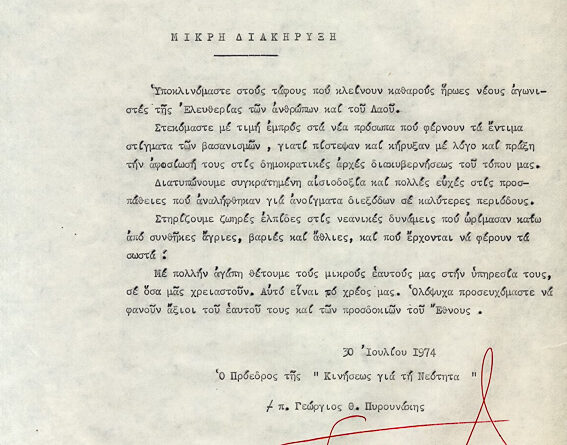 ΜΙΚΡΗ ΔΙΑΚΗΡΥΞΗ
Ὑποκλινόμαστε στούς τάφους πού κλείνουν καθαρούς ἥρωες νέους ἀγωνι-
στές τῆς Ἐλευθερίας τῶν ἀνθρώπων καί τοῦ Λαοῦ.
Στεκόμαστε μέ τιμή ἐμπρός στά νέα πρόσωπα πού φέρνουν τά ἔντιμα
στίγματα τῶν βασανισμῶν , γιατί πίστεψαν καί κήρυξαν μέ λόγο καί πράξη
τήν ἀφοσίωσή τους στίς δημοκρατικές ἀρχές διακυβερνήσεως τοῦ τόπου μας.
Διατυπώνουμε συγκρατημένη αἰσιοδοξία καί πολλές εὐχές στίς προσ-
πάθειες πού ἀναλήφθηκαν γιά ἀνοίγματα διεξόδων σέ καλύτερες περιόδους.
Στηρίζουμε ζωηρές ἐλπίδες στίς νεανικές δυνάμεις πού ὡρίμασαν κάτω
ἀπό συνθῆκες ἄγριες, βαριές καί ἄθλιες, καί πού ἔρχονται νά φέρουν τά
σωστά !
Μέ πολλήν ἀγάπη θέτουμε τούς μικρούς ἑαυτούς μας στήν ὑπηρεσία τους,
σέ ὅσα μᾶς χρειαστοῦν. Αὐτό εἶναι τό χρέος μας. Ὁλόψυχα προσευχόμαστε νά
φανοῦν ἄξιοι τοῦ ἑαυτοῦ τους καί τῶν προσδοκιῶν τοῦ Ἔθνους .
30 Ἰουλίου 1974
Ὁ Πρόεδρος τῆς " Κινήσεως γιά τή Νεότητα "
π. Γεώργιος Θ. Πυρουνάκης